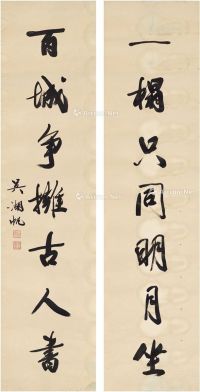 一榻只同明月坐
百城争擁古人書
吴湖帆